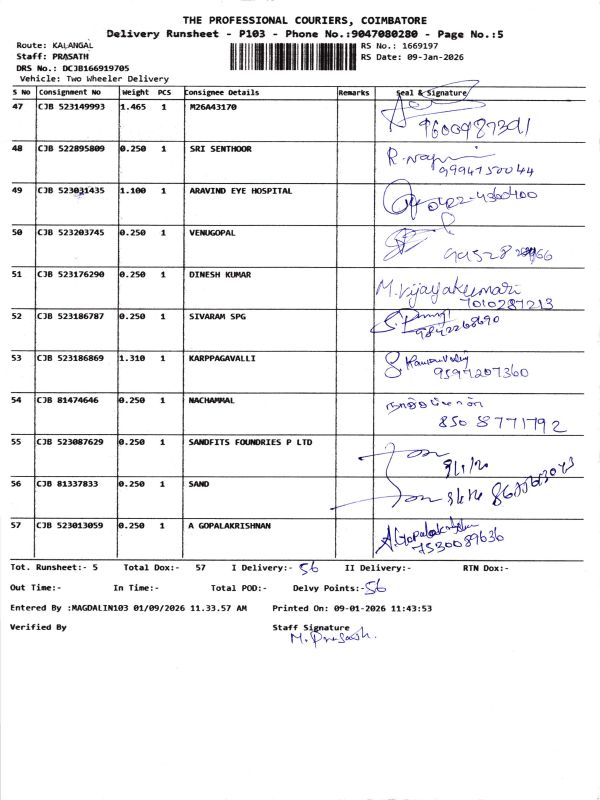 THE PROFESSIONAL COURIERS, COIMBATORE
Delivery Runsheet - P103 - Phone No.:9047080280 - Page No.:5
Route: KALANGAL
RS No.: 1669197
Staff: PRASATH
RS Date: 09-Jan-2026
DRS No.: DCJB166919705
Vehicle: Two Wheeler Delivery
S No Consignment No Weight PCS Consignee Details Remarks Seal & Signature
47 CJB 523149993 1.465 1 M26A43170
9600987391
48 CJB 522895809 0.250 1 SRI SENTHOOR
9994750044
49 CJB 523031435 1.100 1 ARAVIND EYE HOSPITAL
0422-4360400
50 CJB 523203745 0.250 1 VENUGOPAL
51 CJB 523176290 0.250 1 DINESH KUMAR
M. Vijayakumari
7010287213
52 CJB 523186787 0.250 1 SIVARAM SPG
9842268690
53 CJB 523186869 1.310 1 KARPPAGAVALLI
9597207360
54 CJB 81474646 0.250 1 NACHAMMAL
850 8771792
55 CJB 523087629 0.250 1 SANDFITS FOUNDRIES P LTD
56 CJB 81337833 0.250 1 SAND
57 CJB 523013059 0.250 1 A GOPALAKRISHNAN
A. Gopalakrishnan
7530089636
Tot. Runsheet:- 5 Total Dox:- 57 I Delivery:- 56 II Delivery:- RTN Dox:-
Out Time:- In Time:- Total POD:- Delvy Points:- 56
Entered By :MAGDALIN103 01/09/2026 11.33.57 AM Printed On: 09-01-2026 11:43:53
Verified By Staff Signature
M. Prasath.